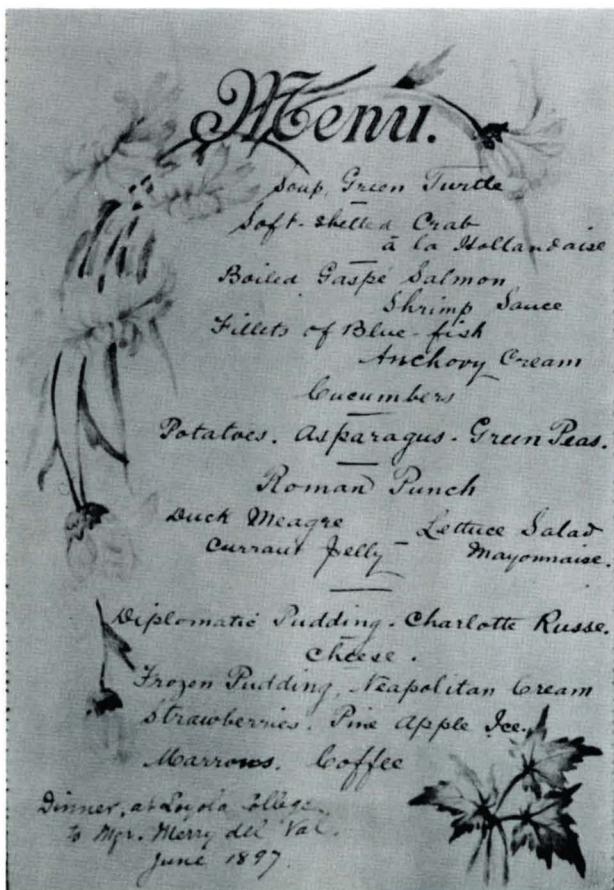 Menu.
Soup, Green Turtle
Soft-shelled Crab
à la Hollandaise
Boiled Gaspé Salmon
Shrimp Sauce
Fillets of Blue-fish
Anchovy Cream
Cucumbers
Potatoes. Asparagus - Green Peas.
Roman Punch
Duck Meagre
Currant Jelly -
Lettuce Salad
Mayonnaise.
Diplomatic Pudding - Charlotte Russe.
Cheese.
Frozen Pudding, Neapolitan Cream
Strawberries. Pine Apple Ice.
Marrons. Coffee
Dinner, at Loyola College
to Mgr. Merry del Val.
June 1897.